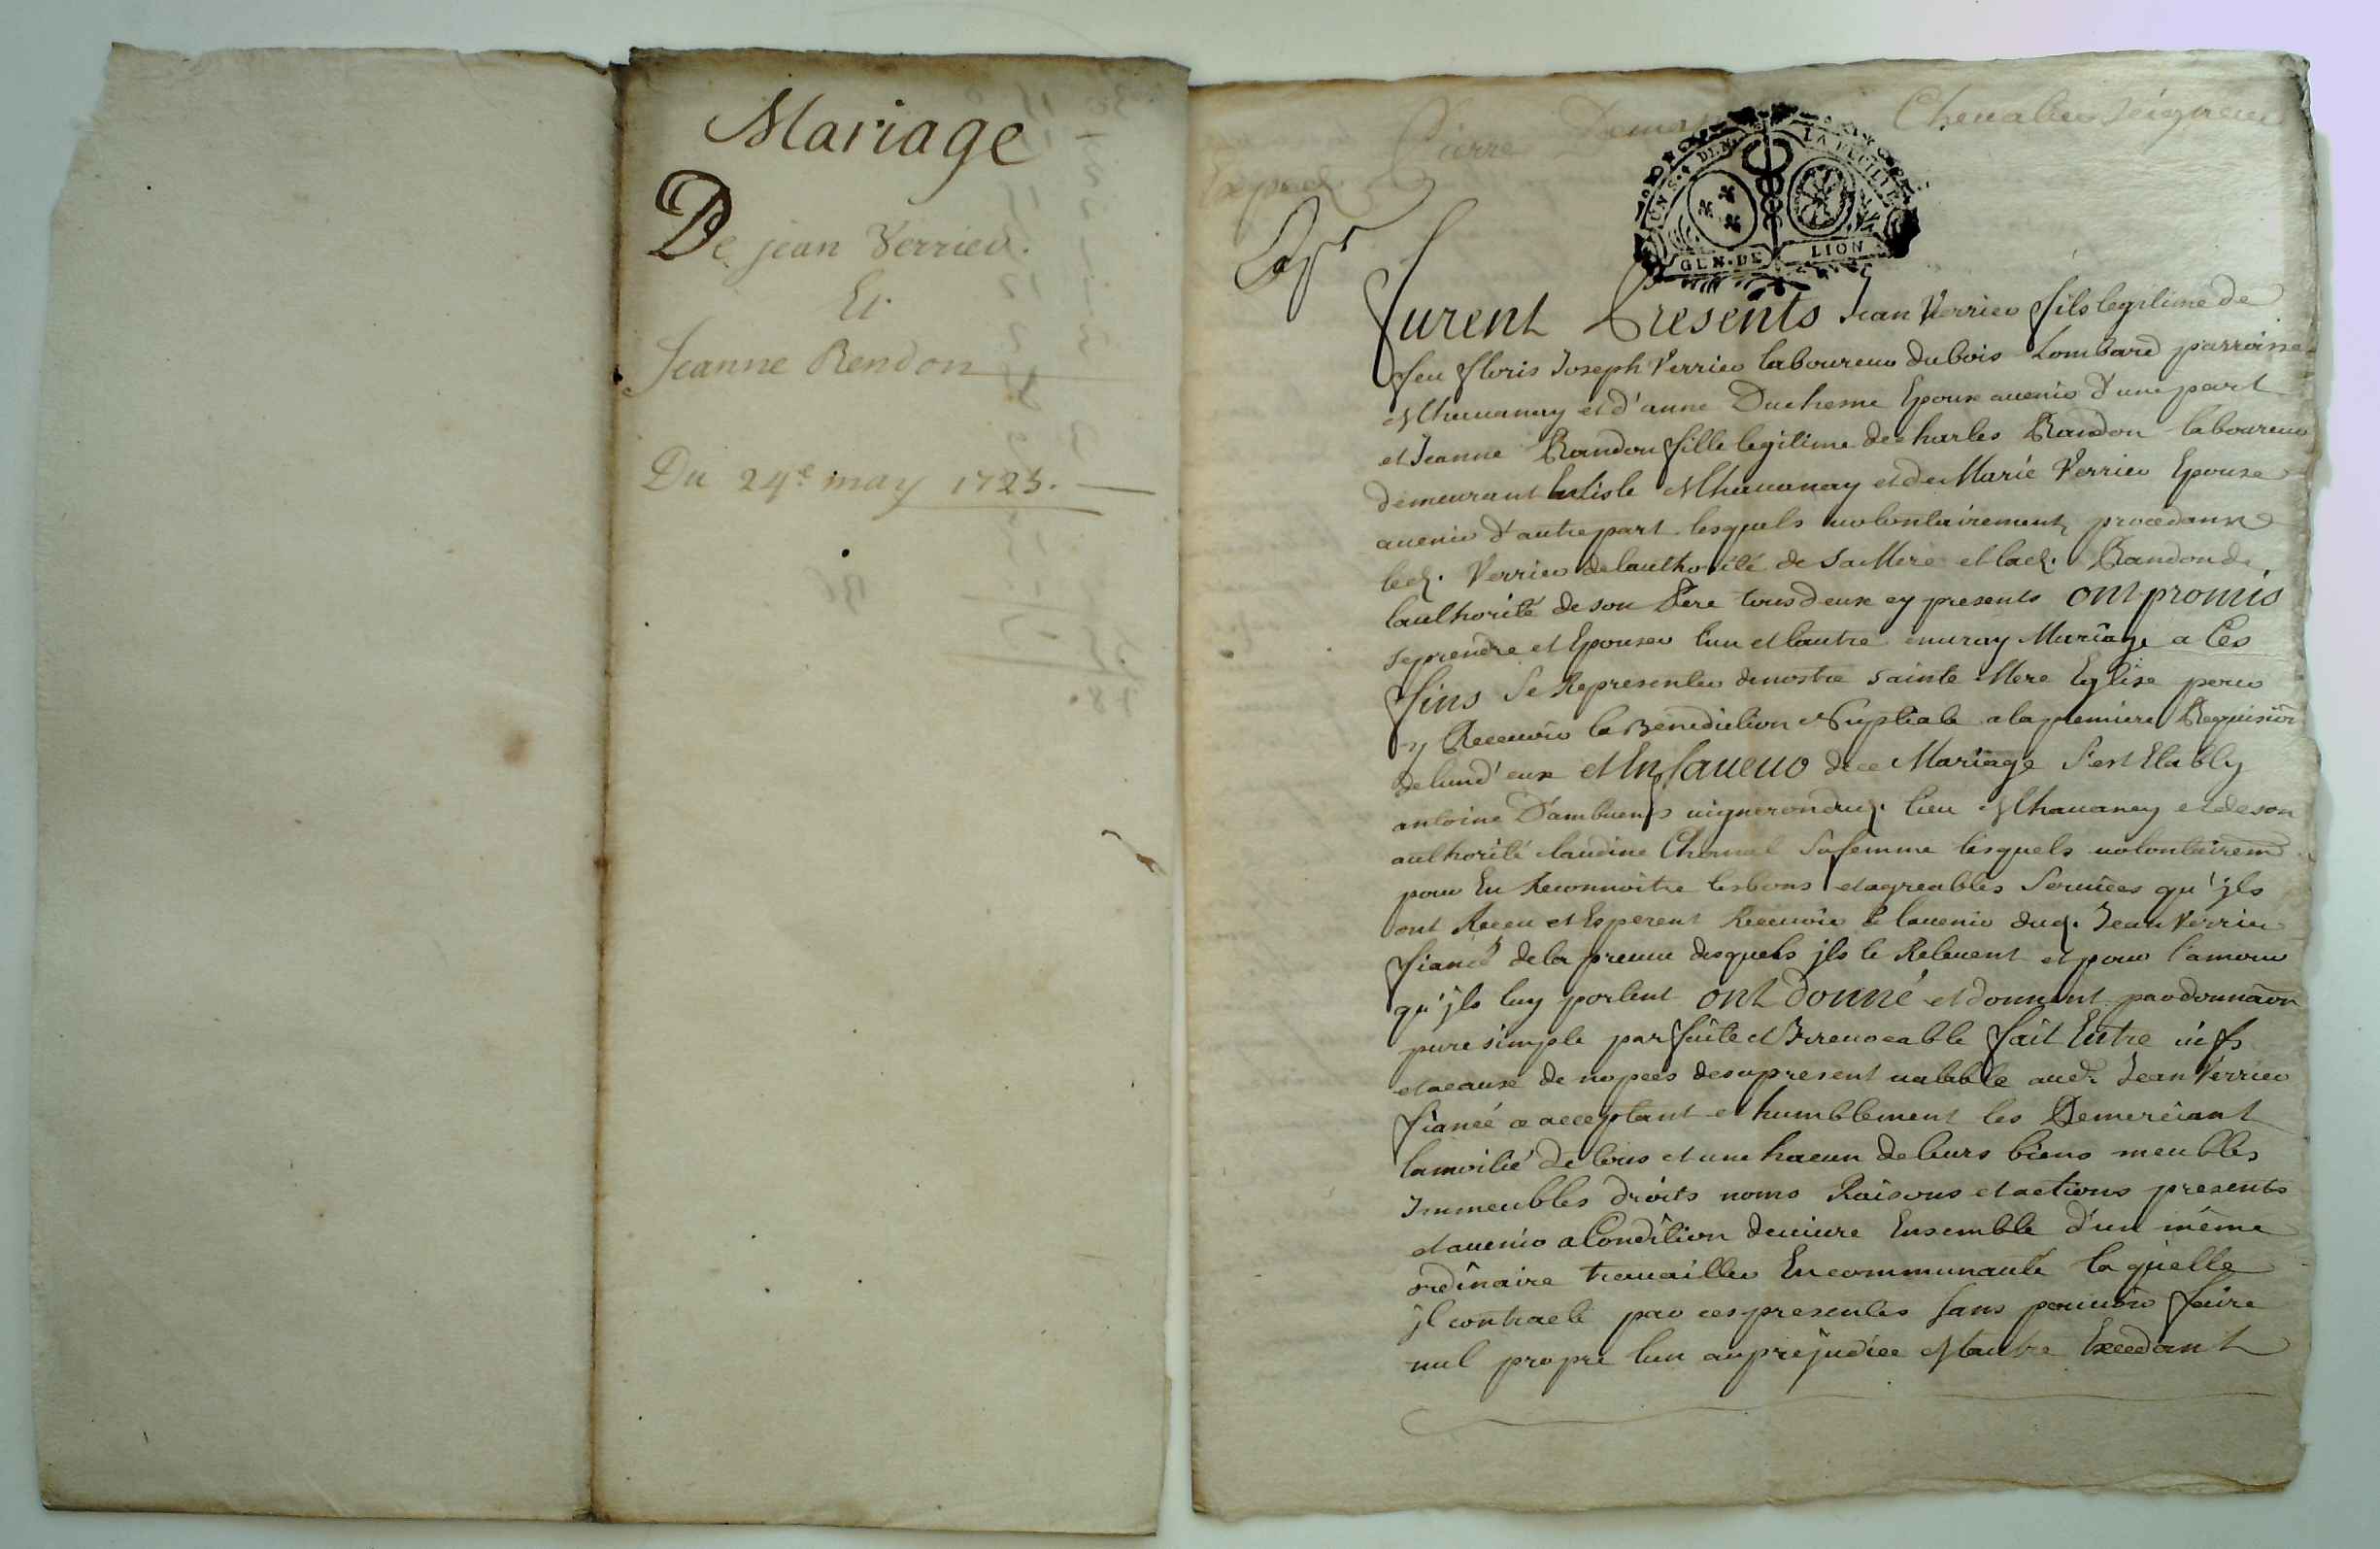 Mariage
De jean Verrier.
Et
Jeanne Rendon
Du 24e may 1723.
Pierre Chevalier Seigneur
Exped.
UN S. 4 DEN. LA FEUILLE
GEN. DE LION
Furent Presents Jean Verrier fils legitime de
feu floris Joseph Verrier laboureur du bois Lombard parroisse
de Chauanay et d'anne Duchesne Epoux auenir d'une part
et Jeanne Randon fille legitime de charles Randon laboureur
demeurant de Chauanay et de Marie Verrier Epouse
auenir d'autre part lesquels uolontairement, procedants
led. Verrier de lauthorité de sa Mere et lad. Randon de
lauthorité de son Pere tous deux cy presents ont promis
se prendre et Epouser l'un et lautre en uray Mariage a Ces
fins Se Representer de nostre Sainte Mere Eglise pour
y Receuoir la Benediction Nuptiale a la premiere Requision
de lun d'eux et En faueur de ce Mariage S'est Etably
antoine D'ambuens uigneron dud. lieu de Chauanay et de son
authorité Claudine Chomel Sa femme lesquels uolontairemt
pour En Reconnoitre les bons et agreables Seruices qu'jls
ont Receu et Esperent Receuoir a lauenir dud. Jean Verrier
fiancé de la preuue desquels jls le Releuent et pour l'amour
qu'jls luy portent ont donné et donnent par donnaon
pure simple parfaite et Irreuocable fait Entre uifs
et a cause de nopces des a present ualable aud. Jean Verrier
fiancé acceptant et humblement les Remerciant
la moitié de tous et un chacun de leurs biens meubles
Immeubles droits noms Raisons et actions presents
et auenir a Condition de uiure Ensemble d'un même
ordinaire trauailler En communauté laquelle
jl contracte par ces presentes Sans pouuoir faire
nul propre lun au préjudice de lautre Excedant